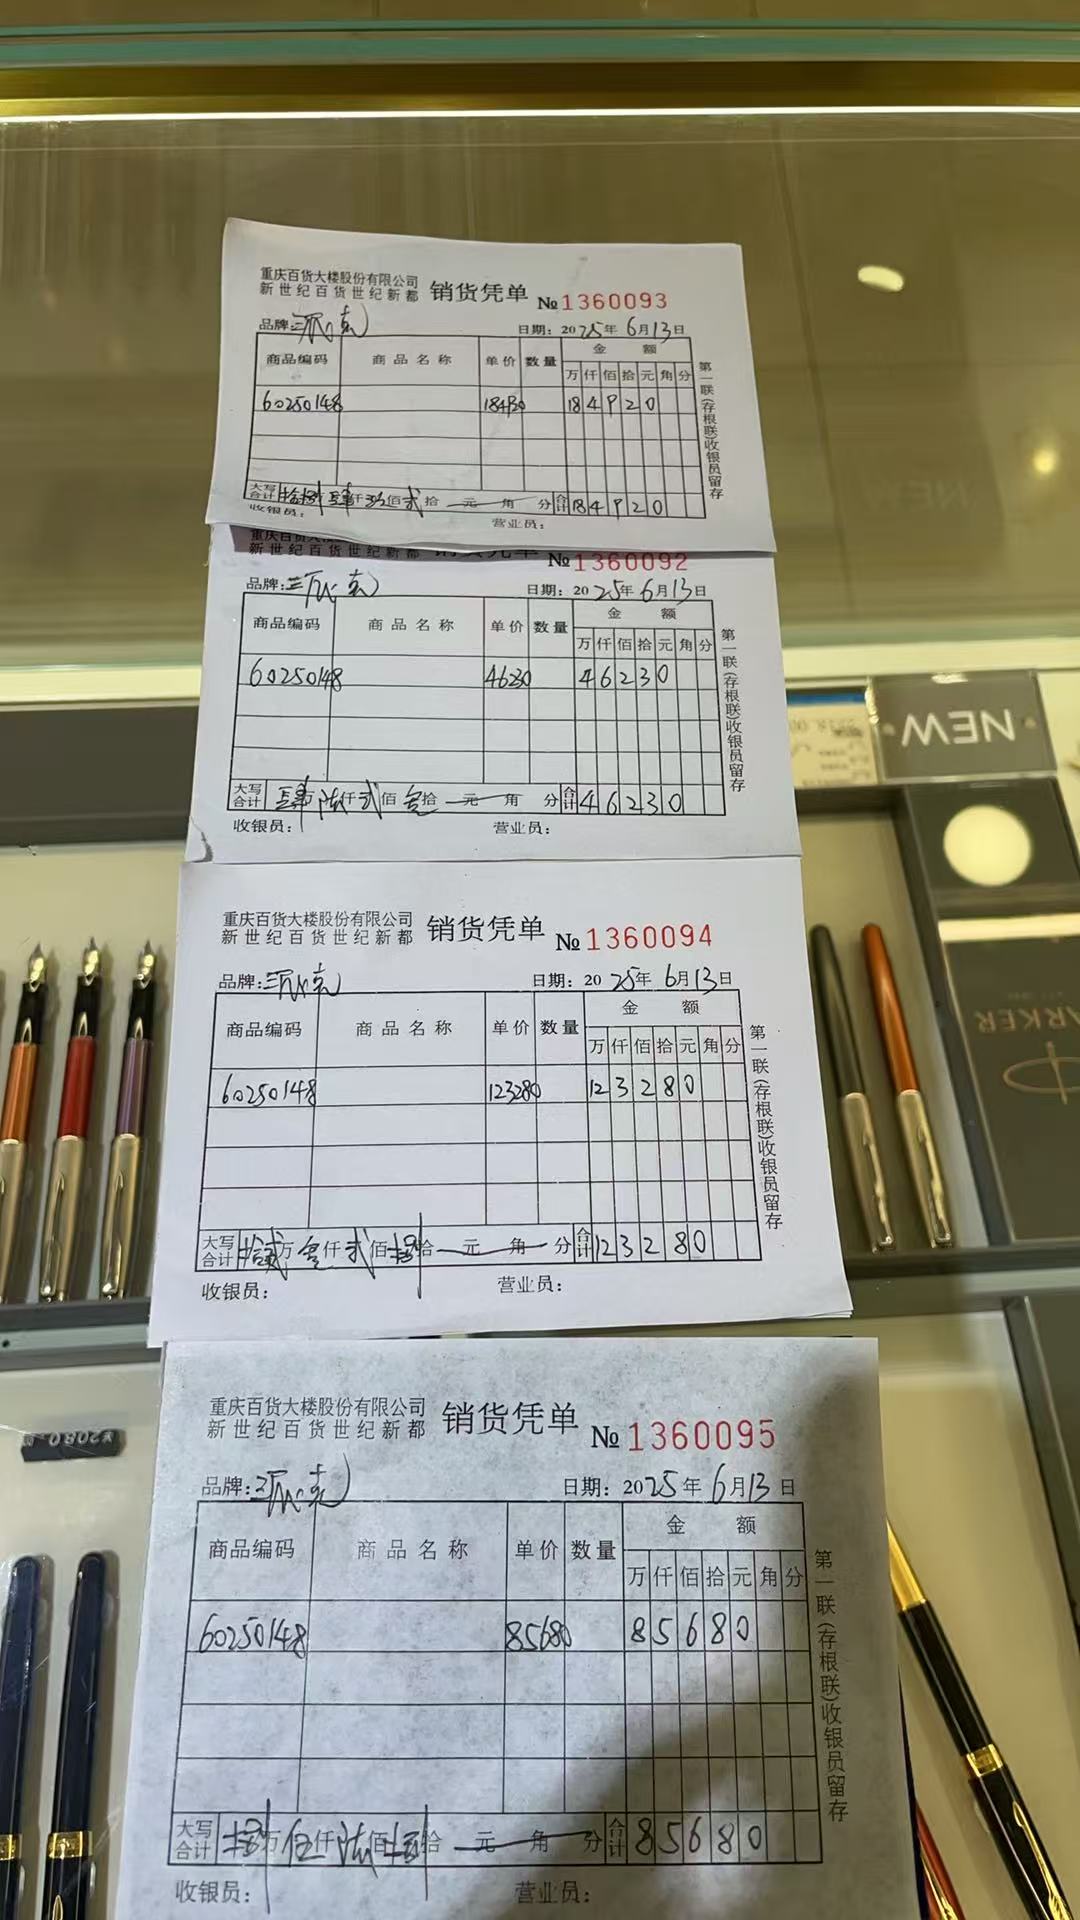 重庆百货大楼股份有限公司
新世纪百货世纪新都 销货凭单 № 1360093
品牌: 日期: 2025年6月13日
商品编码 商品名称 单价 数量 金额
万 仟 佰 拾 元 角 分
60250148 184920 18 4 9 2 0
大写合计 仟 佰 贰 拾 元 角 分 合计 18 4 9 2 0
收银员: 营业员:
第一联(存根联)收银员留存
重庆百货大楼
新世纪百货世纪新都 销货凭单 № 1360092
品牌: 日期: 2025年6月13日
商品编码 商品名称 单价 数量 金额
万 仟 佰 拾 元 角 分
60250148 46230 4 6 2 3 0
大写合计 肆万陆仟贰佰 拾 元 角 分 合计 4 6 2 3 0
收银员: 营业员:
第一联(存根联)收银员留存
重庆百货大楼股份有限公司
新世纪百货世纪新都 销货凭单 № 1360094
品牌: 日期: 2025年6月13日
商品编码 商品名称 单价 数量 金额
万 仟 佰 拾 元 角 分
60250148 123280 12 3 2 8 0
大写合计 拾贰万 仟贰佰捌拾 元 角 分 合计 12 3 2 8 0
收银员: 营业员:
第一联(存根联)收银员留存
重庆百货大楼股份有限公司
新世纪百货世纪新都 销货凭单 № 1360095
品牌: 日期: 2025年6月13日
商品编码 商品名称 单价 数量 金额
万 仟 佰 拾 元 角 分
60250148 85680 8 5 6 8 0
大写合计 捌万伍仟陆佰捌拾 元 角 分 合计 8 5 6 8 0
收银员: 营业员:
第一联(存根联)收银员留存
NEW
NEW
ARKER